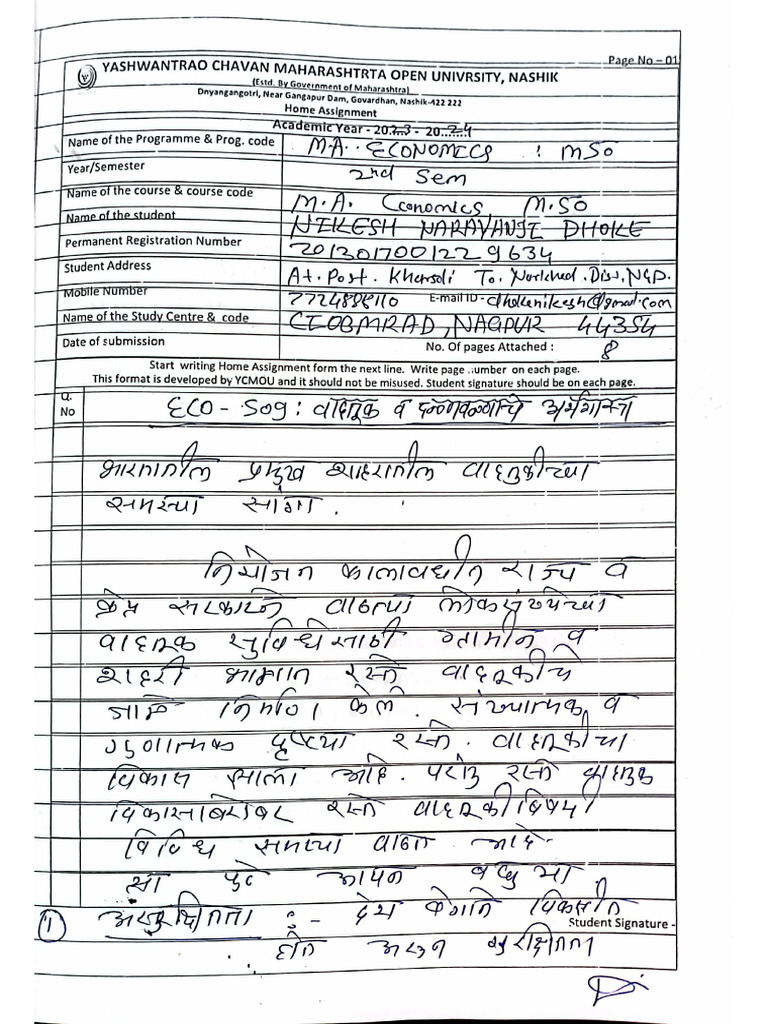 Page No – 01
YASHWANTRAO CHAVAN MAHARASHTRTA OPEN UNIVRSITY, NASHIK
(Estd. By Government of Maharashtra)
Dnyangangotri, Near Gangapur Dam, Govardhan, Nashik-422 222
Home Assignment
Academic Year - 2023 - 2024
Name of the Programme & Prog. code M.A. ECONOMICS : M50
Year/Semester 2nd Sem
Name of the course & course code M.A. Economics M.50
Name of the student NIKESH NARAYANJI DHOKE
Permanent Registration Number 2012017001229634
Student Address At. Post. Kharsoli To. Narkhed. Dis. NGP.
Mobile Number 7724888110 E-mail ID - dhokenikesh@gmail.com
Name of the Study Centre & code NAGPUR 44354
Date of submission No. Of pages Attached : 8
Start writing Home Assignment form the next line. Write page number on each page.
This format is developed by YCMOU and it should not be misused. Student signature should be on each page.
Q. No
ECO - 509 : वाहतूक व दळणवळणाचे अर्थशास्त्र
भारतातील प्रमुख शहरातील वाहतुकीच्या
समस्या सांगा .
नियोजन कालावधीत राज्य व
केंद्र सरकारने वाढत्या लोकसंख्येच्या
वाहतूक सुविधेसाठी ग्रामीण व
शहरी भागात रस्ते वाहतूकीचे
जाळे निर्माण केले . संख्यात्मक व
गुणात्मक दृष्ट्या रस्ते . वाहतूकीचा
विकास झाला आहे . परंतु रस्ते वाहतूक
विकासाबरोबर रस्ते वाहतूकीविषयी
विविध समस्या वाढत आहे .
पुढे आपण बघु या
1) असुरक्षितता :- देश वेगाने विकसीत
Student Signature -
होत असून सुरक्षितता